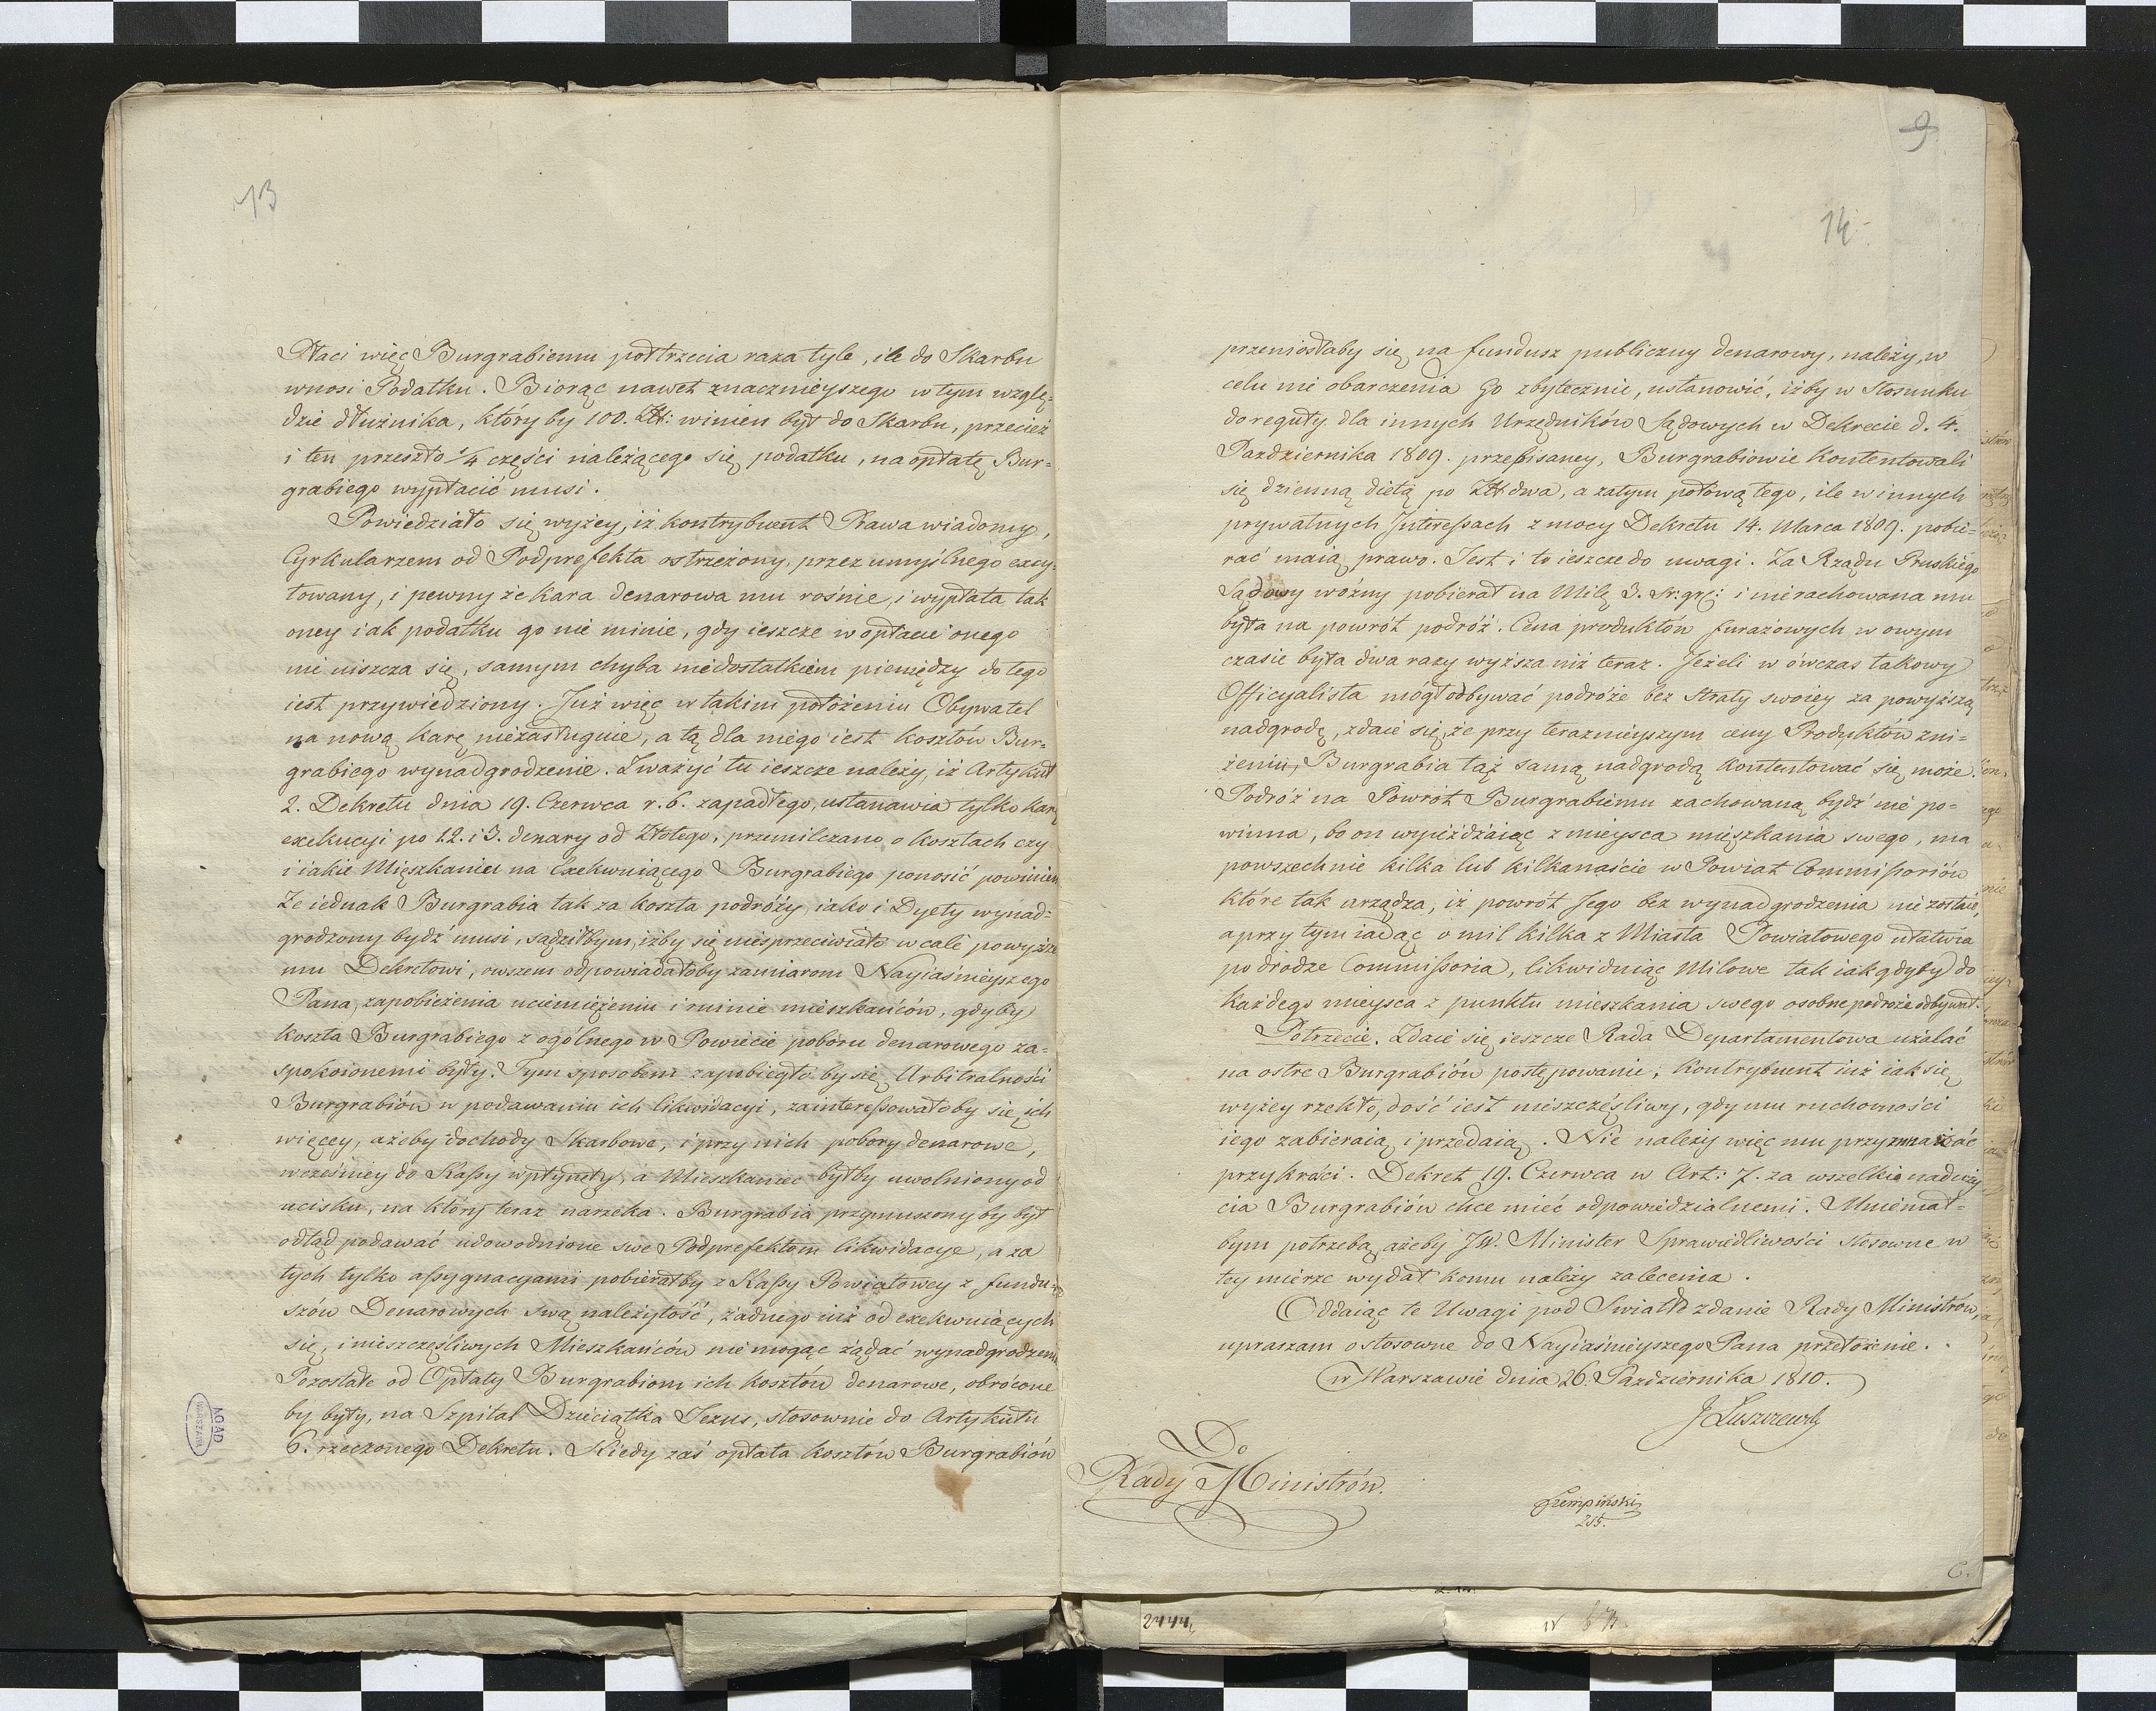 13
Płaci więc Burgrabiemu półtrzecia raza tyle, ile do Skarbu
wnosi Podatku. Biorąc nawet znacznieyszego w tym wzglę=
dzie dłużnika, który by 100. Zł: winien był do Skarbu, przecież
i ten przeszło 1/4 części należącego się podatku, na opłatę Bur=
grabiego wypłacić musi.
Powiedziało się wyżey, iż kontrybuent Prawa wiadomy,
Cyrkularzem od Podprefekta ostrzeżony, przez umyślnego excy=
towany, i pewny że kara denarowa mu rośnie, i wypłata tak
oney iak podatku go nie minie, gdy ieszcze w opłacie onego
nie uiszcza się, samym chyba niedostatkiem pieniędzy do tego
iest przywiedziony. Już więc w takim położeniu Obywatel
na nową karę niezasługuie, a tą dla niego iest kosztów Bur=
grabiego wynadgrodzenie. Zważyć tu ieszcze należy, iż Artykuł
2. Dekretu dnia 19. Czerwca r. b. zapadłego, ustanawia tylko karę
exekucyi po 1. 2. i 3. denary od Złotego, przemilczano o kosztach czy
i iakie Mięszkaniec na Exekwuiącego Burgrabiego ponosić powinien
Że iednak Burgrabia tak za koszta podróży, iako i Dyety wynad=
grodzony bydź musi, sądziłbym, iżby się niesprzeciwiało wcale powyższe
mu Dekretowi, owszem odpowiadałoby zamiarom Nayiaśnieyszego
Pana, zapobieżenia uciemiężeniu i ruinie mieszkańców, gdyby
koszta Burgrabiego z ogólnego w Powiecie poboru denarowego za=
spokoionemi były. Tym sposobem zapobiegłoby się Arbitralności
Burgrabiów w podawaniu ich likwidacyi, zainteressowałoby się ich
więcey, ażeby dochody Skarbowe, i przy nich pobory denarowe,
wcześniey do Kassy wpłynęły, a Mieszkaniec byłby uwolniony od
ucisku, na który teraz narzeka. Burgrabia przymuszony by był
odtąd podawać udowodnione swe Podprefektom likwidacye, a za
tych tylko assygnacyami pobierałby z Kassy Powiatowey z fundu=
szów Denarowych swą należytość, żadnego iuż od exekwuiących
się, i nieszczęśliwych Mieszkańców nie mogąc żądać wynadgrodzenia
Pozostałe od Opłaty Burgrabiom ich kosztów denarowe, obrócone
by były, na Szpital Dzieciątka Jezus, stosownie do Artykułu
6. rzeczonego Dekretu. Kiedy zaś opłata kosztów Burgrabiów
AGAD
WARSZAWA
9
14
przeniosłaby się na fundusz publiczny denarowy, należy, w
celu nie obarczenia Go zbytecznie, ustanowić, iżby w Stosunku
do reguły dla innych Urzędników Sądowych w Dekrecie d. 4.
Października 1809. przepisaney, Burgrabiowie kontentowali
się dzienną dietą po Zł dwa, a zatym połową tego, ile w innych
prywatnych Interessach z mocy Dekretu 14. Marca 1809. pobie=
rać maią prawo. Jest i to ieszcze do uwagi. Za Rządu Pruskiego
Sądowy woźny pobierał na Milę 3. sr: gr: i nierachowana mu
była na powrót podróż. Cena produktów furażowych w owym
czasie była dwa razy wyższa niż teraz. Jeżeli w ówczas takowy
Officyalista mógł odbywać podróże bez Straty swoiey za powyższą
nadgrodę, zdaie się, że przy terazniejszym ceny Produktów zni=
żeniu, Burgrabia taż samą nadgrodą kontentować się może.
Podróż na Powrót Burgrabiemu rachowaną bydź nie po=
winna, bo on wyieżdżaiąc z mieysca mięszkania swego, ma
powszechnie kilka lub kilkanaście w Powiat Commissoriów
które tak urządza, iż powrót Jego bez wynadgrodzenia nie zostaie,
a przy tym iadąc o mil kilka z Miasta Powiatowego ułatwia
po drodze Commissoria, likwiduiąc Milowe tak iak gdyby do
każdego mieysca z punktu mieszkania swego osobne podroże odbywał.
Potrzecie. Zdaie się ieszcze Rada Departamentowa użalać
na ostre Burgrabiów postępowanie; Kontrybuent iuż iak się
wyżey rzekło, dość iest nieszczęśliwy, gdy mu ruchomości
iego zabieraią i przedaią. Nie należy więc mu przymnażać
przykrości. Dekret 19. Czerwca w Art: 7. za wszelkie naduży
cia Burgrabiów chce mieć odpowiedzialnemi. Mniemał=
bym potrzebą, ażeby JW. Minister Sprawiedliwości stosowne w
tey mierze wydał komu należy zalecenia.
Oddaiąc te Uwagi pod Swiatłe zdanie Rady Ministrów,
upraszam o stosowne do Nayiaśnieyszego Pana przełożenie.
w Warszawie dnia 26. Października 1810.
J Łuszczewski
Do
Rady Ministrów.
Szempiński
215.
C.
2444